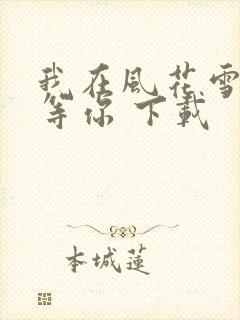 我在風花雪
等你 下載
本城蓮